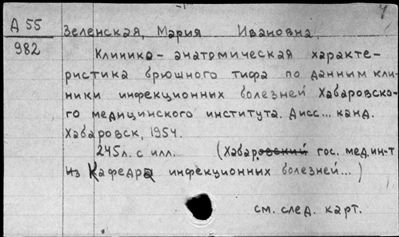 А 55
982
Зеленская, Мария Ивановна.
Клинико-анатомическая характе-
ристика брюшного тифа по данным кли-
ники инфекционных болезней Хабаровско-
го медицинского института. Дисс... канд.
Хабаровск, 1954.
245л. с илл. (Хабаровский гос. мед. ин-т
из Кафедра инфекционных болезней...)
см. след. карт.